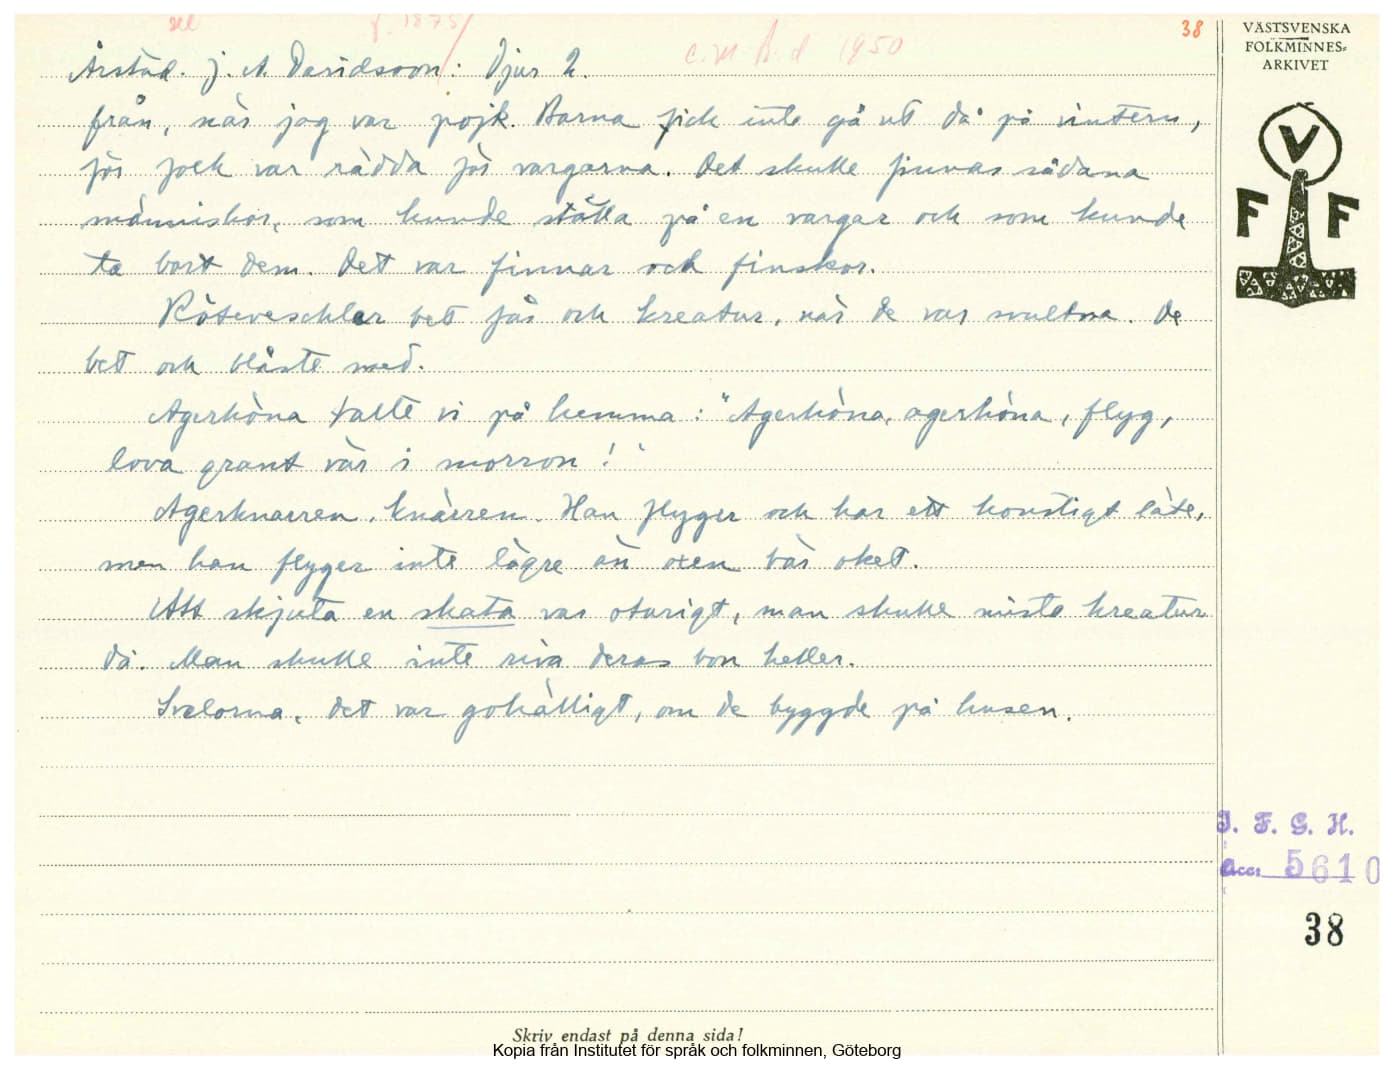 38
f. 1875
c.m A.d 1950
Årstad. J. A Davidsson: Djur 2.
från, när jag var pojk. Barna fick inte gå ut då på vintern,
för folk var rädda för vargarna. Det skulle finnas sådana
människor, som kunde ställa på en vargar och som kunde
ta bort dem. Det var finnar och finskor.
Röteveschlar bet får och kreatur, när de var svultna. De
bet och blåste med.
Agerhöna kallte vi på hemma: "Agerhöna, agerhöna, flyg,
lova grant vär i morron!"
Agerknarren, knärren. Han flyger och har ett konstigt läte,
men han flyger inte lägre än oxen bär oket.
Att skjuta en skata var oturigt, man skulle mista kreatur
då. Man skulle inte riva deras bon heller.
Svalorna, det var gohälligt, om de byggde på husen.
Skriv endast på denna sida!
Kopia från Institutet för språk och folkminnen, Göteborg
VÄSTSVENSKA
FOLKMINNES=
ARKIVET
V
F F
I. F. G. H.
Acc: 5610
38